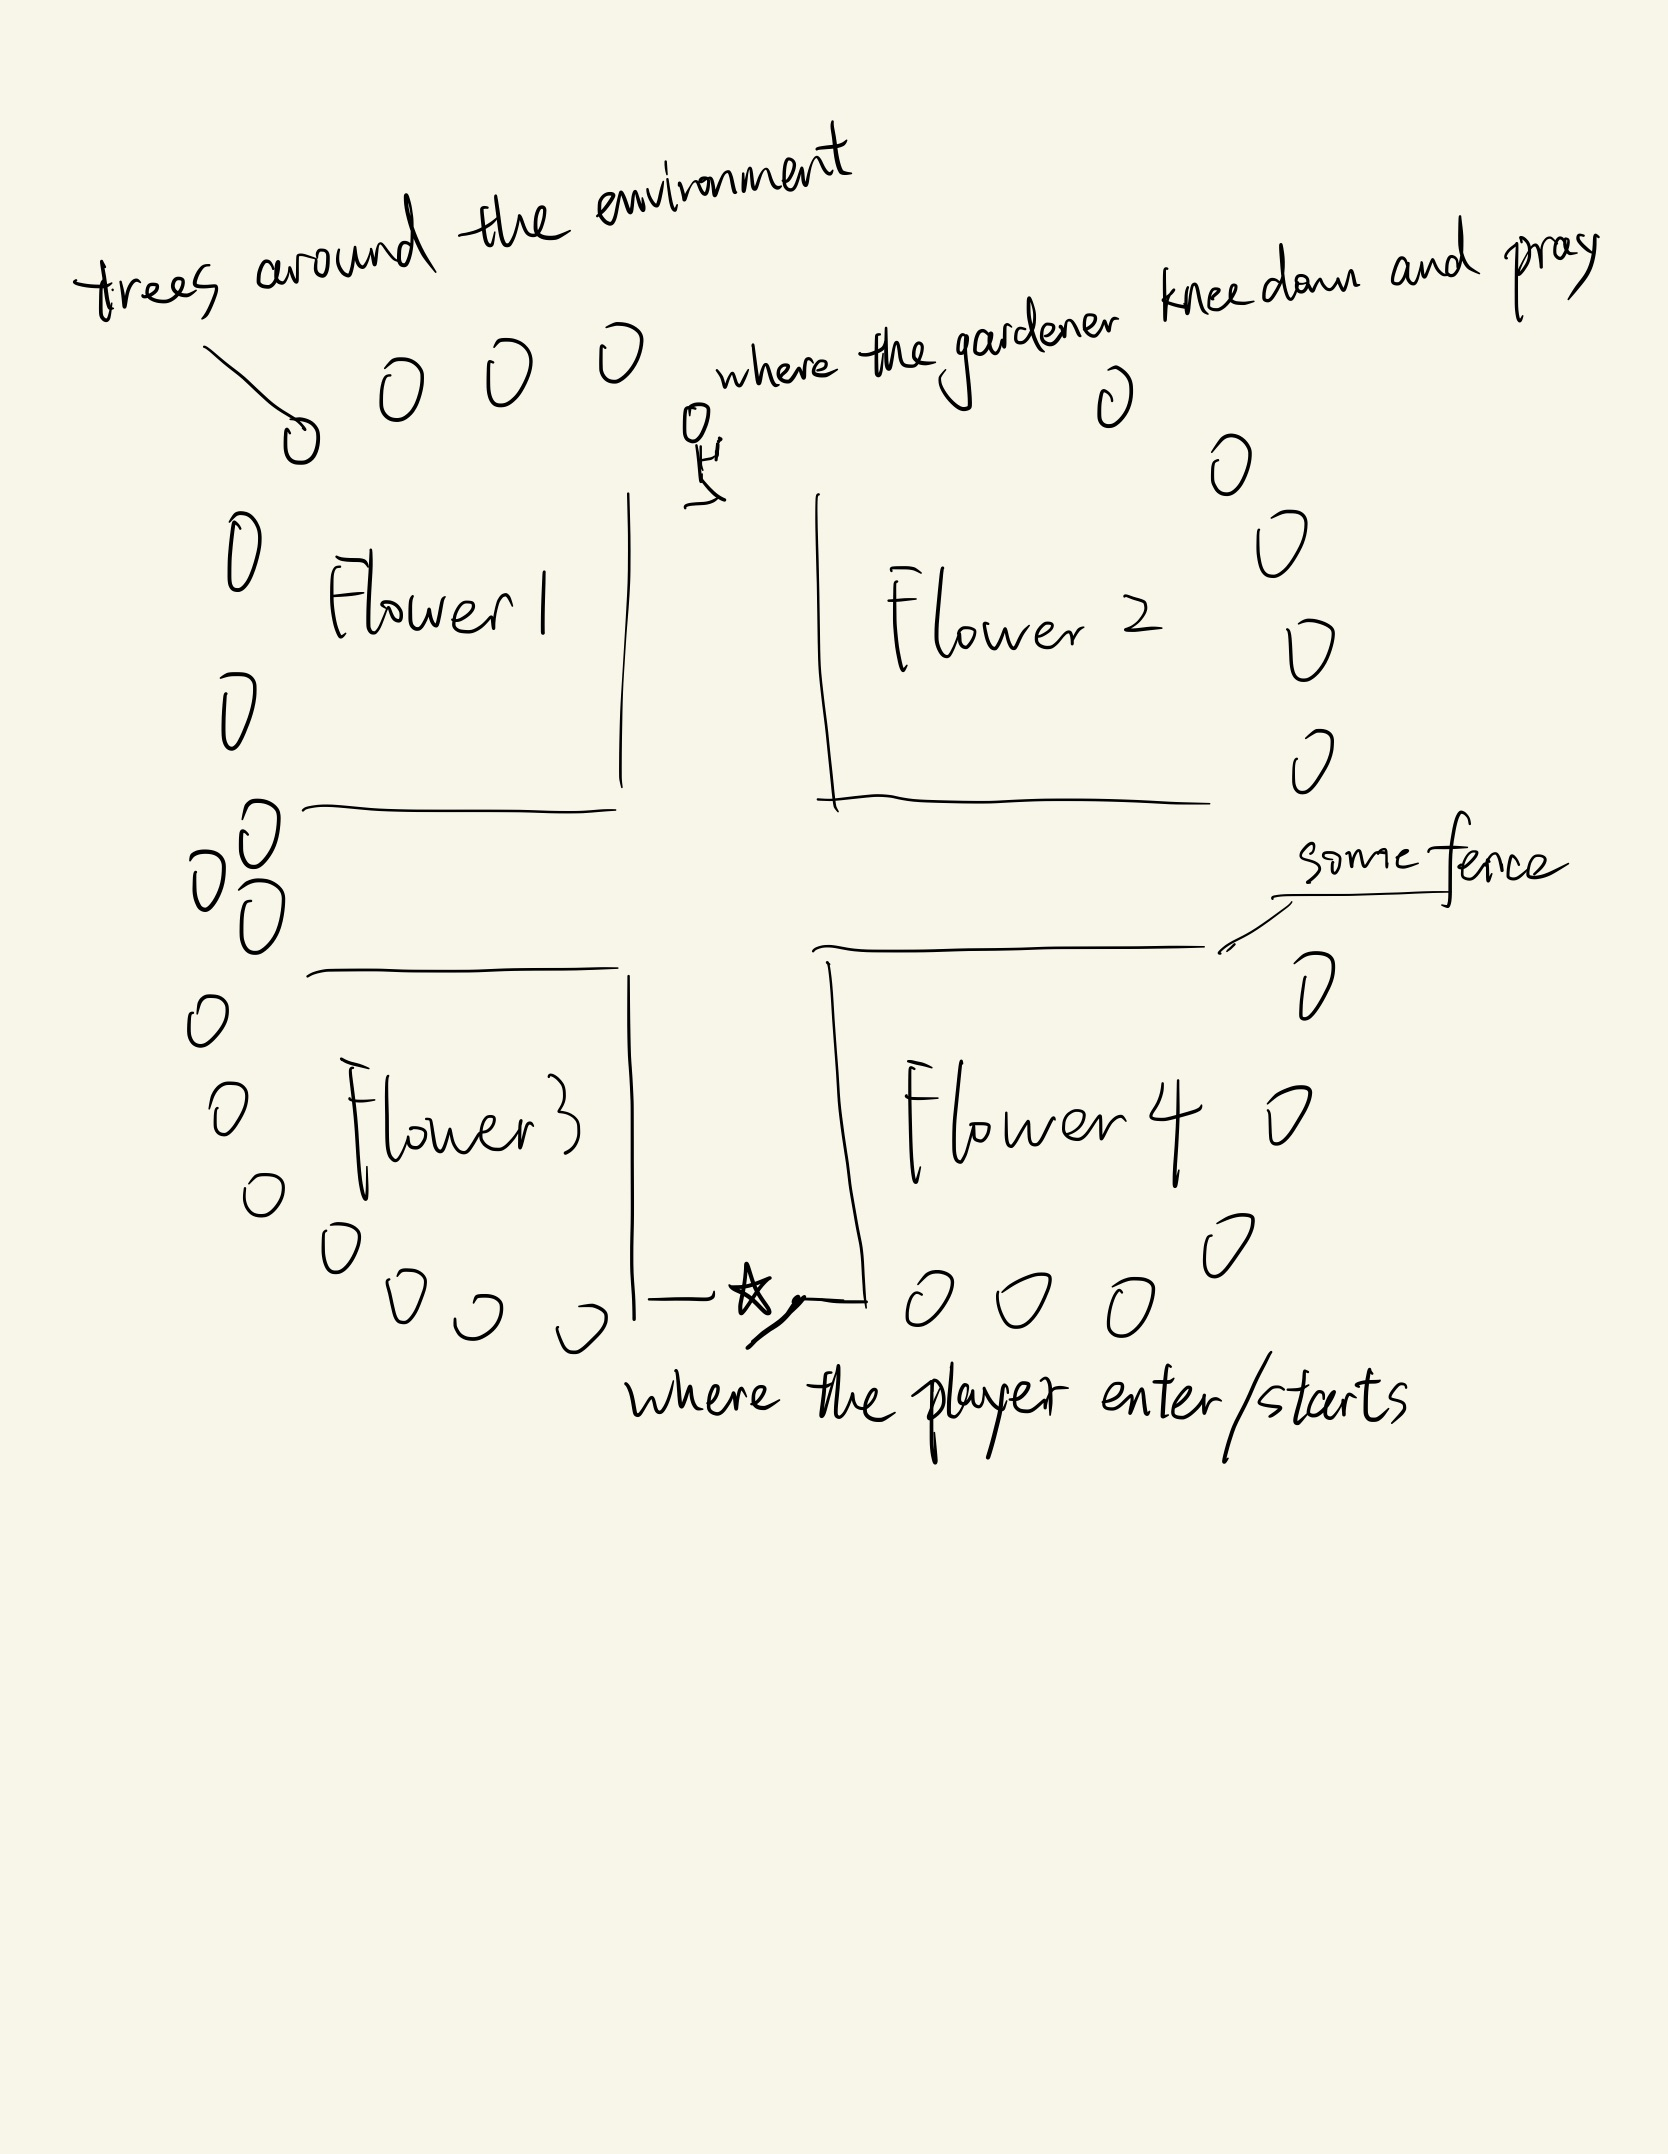 trees around the environment
where the gardener knee down and pray
Flower 1
Flower 2
some fence
Flower 3
Flower 4
where the player enter/starts